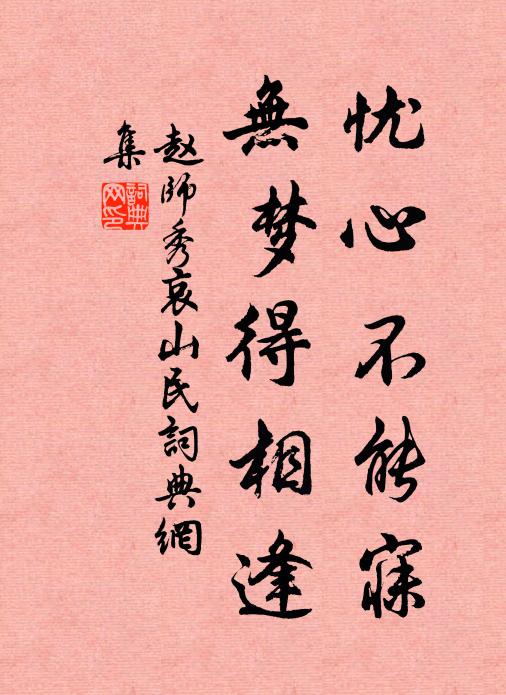 忧心不能寐
無梦得相逢
赵师秀哀山民詞典網
集
詞典網印